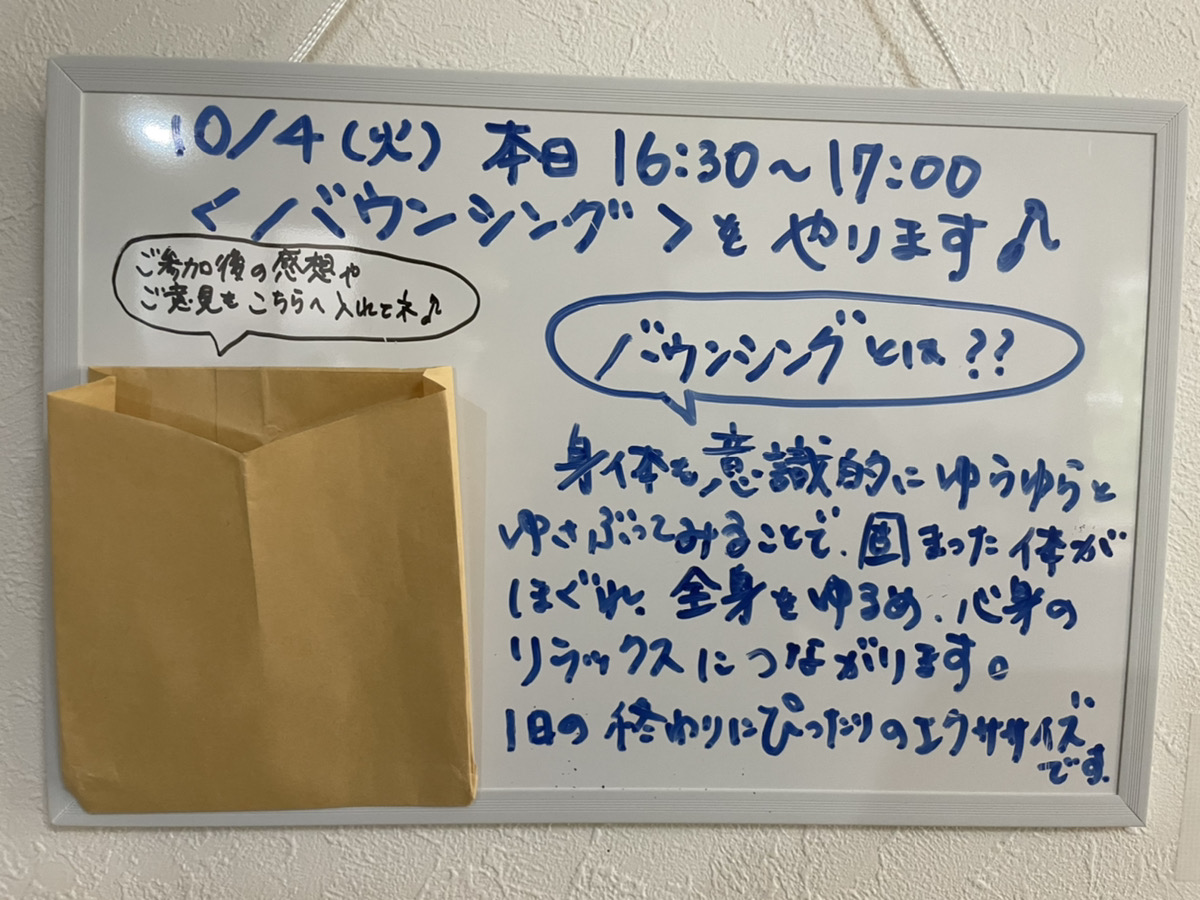 10/4(火) 本日 16:30〜17:00
<バウンシング>をやります♪
ご参加後の感想や
ご意見をこちらへ入れてネ♪
バウンシングとは??
身体を意識的にゆらゆらと
ゆさぶってみることで、固まった体が
ほぐれ、全身をゆるめ、心身の
リラックスにつながります。
1日の終わりにぴったりのエクササイズ
です。